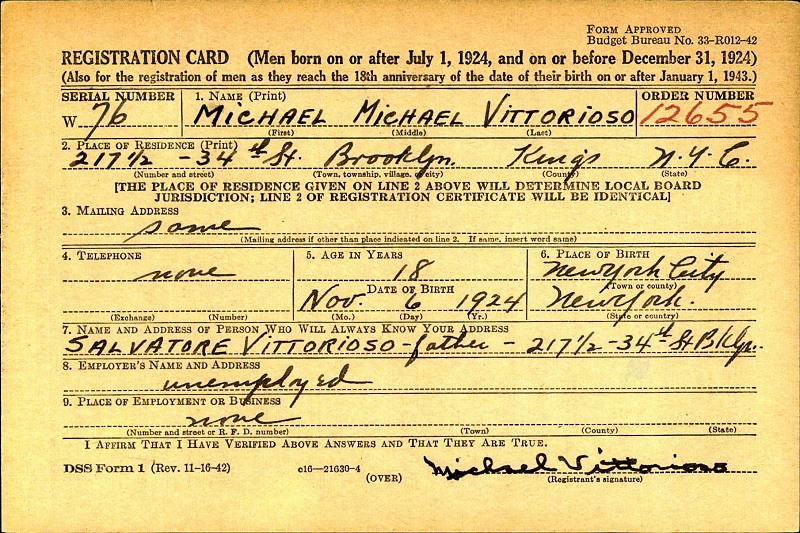 FORM APPROVED
Budget Bureau No. 33-R012-42
REGISTRATION CARD (Men born on or after July 1, 1924, and on or before December 31, 1924)
(Also for the registration of men as they reach the 18th anniversary of the date of their birth on or after January 1, 1943.)
SERIAL NUMBER 1. NAME (Print) ORDER NUMBER
W 76 MICHAEL MICHAEL VITTORIOSO 12655
(First) (Middle) (Last)
2. PLACE OF RESIDENCE (Print)
217 1/2 - 34th St. Brooklyn. Kings N.Y.C.
(Number and street) (Town, township, village, or city) (County) (State)
[THE PLACE OF RESIDENCE GIVEN ON LINE 2 ABOVE WILL DETERMINE LOCAL BOARD
JURISDICTION; LINE 2 OF REGISTRATION CERTIFICATE WILL BE IDENTICAL]
3. MAILING ADDRESS
same
(Mailing address if other than place indicated on line 2. If same, insert word same)
4. TELEPHONE 5. AGE IN YEARS 6. PLACE OF BIRTH
none 18 New York City
DATE OF BIRTH (Town or county)
Nov. 6 1924 New York.
(Exchange) (Number) (Mo.) (Day) (Yr.) (State or country)
7. NAME AND ADDRESS OF PERSON WHO WILL ALWAYS KNOW YOUR ADDRESS
SALVATORE VITTORIOSO - father - 217 1/2 - 34th St Bklyn.
8. EMPLOYER'S NAME AND ADDRESS
unemployed
9. PLACE OF EMPLOYMENT OR BUSINESS
none
(Number and street or R. F. D. number) (Town) (County) (State)
I AFFIRM THAT I HAVE VERIFIED ABOVE ANSWERS AND THAT THEY ARE TRUE.
DSS Form 1 (Rev. 11-16-42) c16-21630-4 Michael Vittorioso
(OVER) (Registrant's signature)